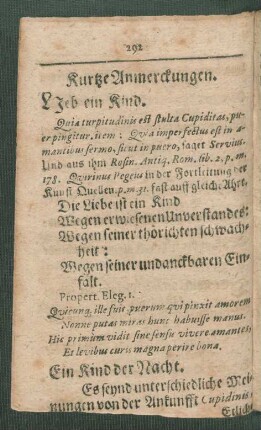 292
Kurtze Anmerckungen.
LJeb ein Kind.
Quia turpitudinis est stulta Cupiditas, pu-
er pingitur, item: Qvia imperfectus est in a-
mantibus sermo, sicut in puero, saget Servius.
Und aus ihm Rosin. Antiq. Rom. lib. 2. p. m.
178. Qvirinus Pegeus in der Fortleitung der
Kunst Quellen. p. m. 31. fast auff gleiche Ahrt,
Die Liebe ist ein Kind
Wegen erwiesenen Unverstandes:
Wegen seiner thörichten schwach-
heit:
Wegen seiner undanckbaren Ein-
falt.
Propert. Eleg. 1.
Qvicunq, ille fuit puerum qvi pinxit amorem
Nonne putas miras hunc habuisse manus.
Hic primum vidit sine sensu vivere amantes
Et levibus curis magna perire bona.
Ein Kind der Nacht.
Es seynd unterschiedliche Mei-
nungen von der Ankunfft Cupidinis
Etliche